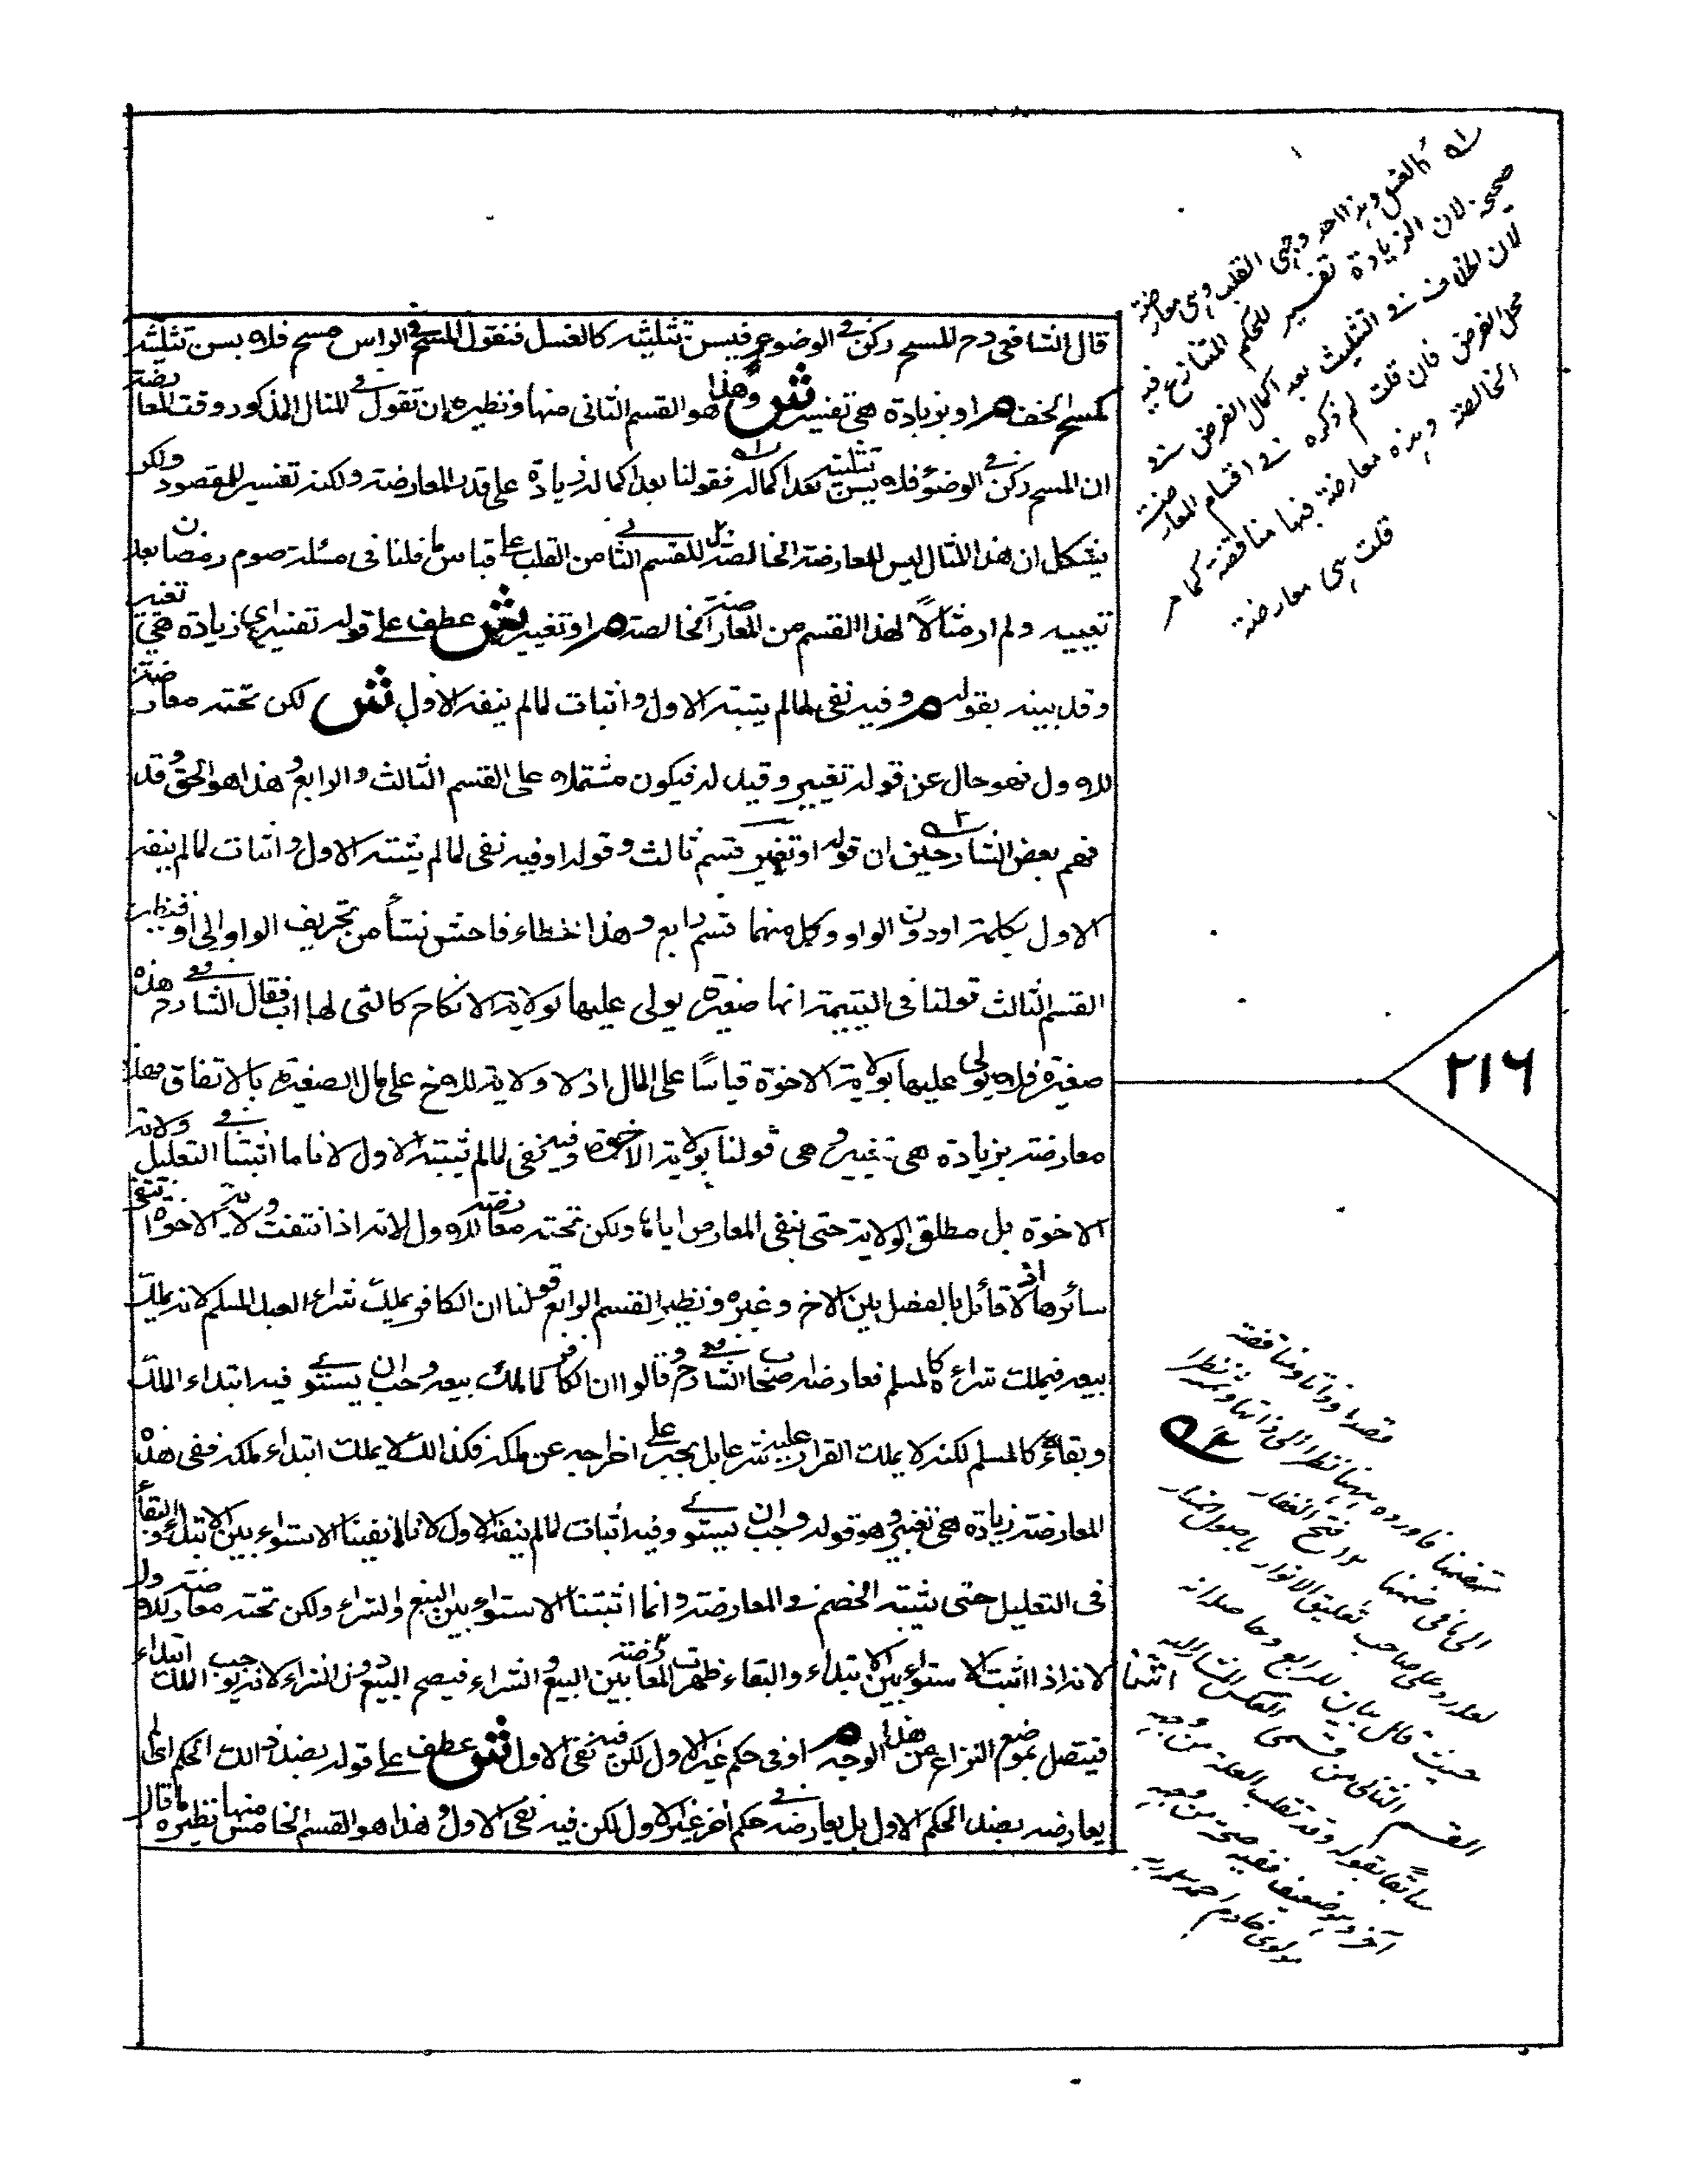 قال الشافعى رح المسح ركن فى الوضوء فيسن تثليثه كالغسل فنقول المسح فى الراس مسح فلا يسن تثليثه
كمسح الخف م او بزيادة هى تفسير ش وهذا هو القسم الثانى منها ونظيره ان تقول فى المثال المذكور وقت المعارضة
ان المسح ركن فى الوضوء فلا يسن تثليثه بعد اكماله فقولنا بعد اكماله زيادة على قدر المعارضة ولكنه تفسير للمقصود ولكن
يشكل ان هذا المثال ليس للمعارضة الخالصة بل للقسم الثانى من القلب على قياس ما قلنا فى مسئلة صوم رمضان بعد
تعيينه ولم ار مثالاً لهذا القسم من المعارضة الخالصة م او تغيير ش عطف على قوله تفسير اى زيادة هى تغيير
وقد بينه بقوله م وفيه نفى لما لم يثبته الاول واثبات لما لم ينفه الاول ش لكن تحته معارضة
للاول فهو حال عن قوله تغيير وقيد له فيكون مشتملا على القسم الثالث والرابع وهذا هو الحق وقد
فهم بعض الشارحين ان قوله او تغيير قسم ثالث وقوله او فيه نفى لما لم يثبته الاول واثبات لما لم ينفه
الاول بكلمة او دون الواو وكل منهما قسم رابع وهذا خطاء فاحش نشأ من تحريف الواو الى او فنظير
القسم الثالث قولنا فى اليتيمة انها صغيرة يولى عليها بولاية الانكاح كالتى لها اب فقال الشافعى رح هذه
صغيرة فلا يولى عليها بولاية الاخوة قياسًا على المال اذ لا ولاية للاخ على مال الصغيرة بالاتفاق فهذا
معارضة بزيادة هى تغيير وهى قولنا بولاية الاخوة وفيه نفى لما لم يثبته الاول لانا ما اثبتنا فى التعليل ولاية
الاخوة بل مطلق الولاية حتى ينفى المعارض اياها ولكن تحته معارضة للاول لانه اذا انتفت ولاية الاخوة انتفى
سائرها اذ لا قائل بالفصل بين الاخ وغيره ونظير القسم الرابع قولنا ان الكافر يملك شراء العبد المسلم لانه يملك
بيعه فيملك شراءه كالمسلم فعارضه اصحاب الشافعى رح وقالوا ان الكافر لما ملك بيعه وجب ان يستوى فيه ابتداء الملك
وبقاءه كالمسلم لكنه لا يملك القرار عليه شرعا بل يجبر على اخراجه عن ملكه فكذالك لا يملك ابتداء ملكه ففى هذه
المعارضة زيادة هى تغيير وهو قوله وجب ان يستوى وفيه اثبات لما لم ينفه الاول لانا ما نفينا الاستواء بين الابتداء والبقاء
فى التعليل حتى يثبته الخصم فى المعارضة وانما اثبتنا الاستواء بين البيع والشراء ولكن تحته معارضة للاول
لانه اذا اثبت الاستواء بين الابتداء والبقاء ظهرت المعارضة بين البيع والشراء فيصح البيع دون الشراء لانه يوجب الملك ابتداء
فيتصل بموضع النزاع من هذا الوجه م او فى حكم غير الاول لكن فيه نفى الاول ش عطف على قوله بضد ذالك الحكم اى لم
يعارضه بضد الحكم الاول بل يعارضه فى حكم اخر غير الاول لكن فيه نفى الاول وهذا هو القسم الخامس منها نظيره ما قال
كالغسل وهذا احد وجهى القلب وهى معارضة
صحيحة لان الزيادة تفسير للحكم المتنازع فيه
لان الخلاف فى التثليث بعد اكمال الفرض فى
محل الفرض فان قلت لم ذكره فى اقسام المعارضة
الخالصة وهذه معارضة فيها مناقضة كما مر
قلت هى معارضة
٢١٦
قصدا وذاتا ومناقضة
ضمنا فاورده ههنا نظرا الى ذاتها وثمه نظرا
الى ما فى ضمنها فتح الغفار
حيث قال
القسم الثانى من قسمى العكس المشار اليه
سابقًا بقوله وقد تقلب العلة من وجه
آخر وهو ضعيف
مولوى خادم احمد